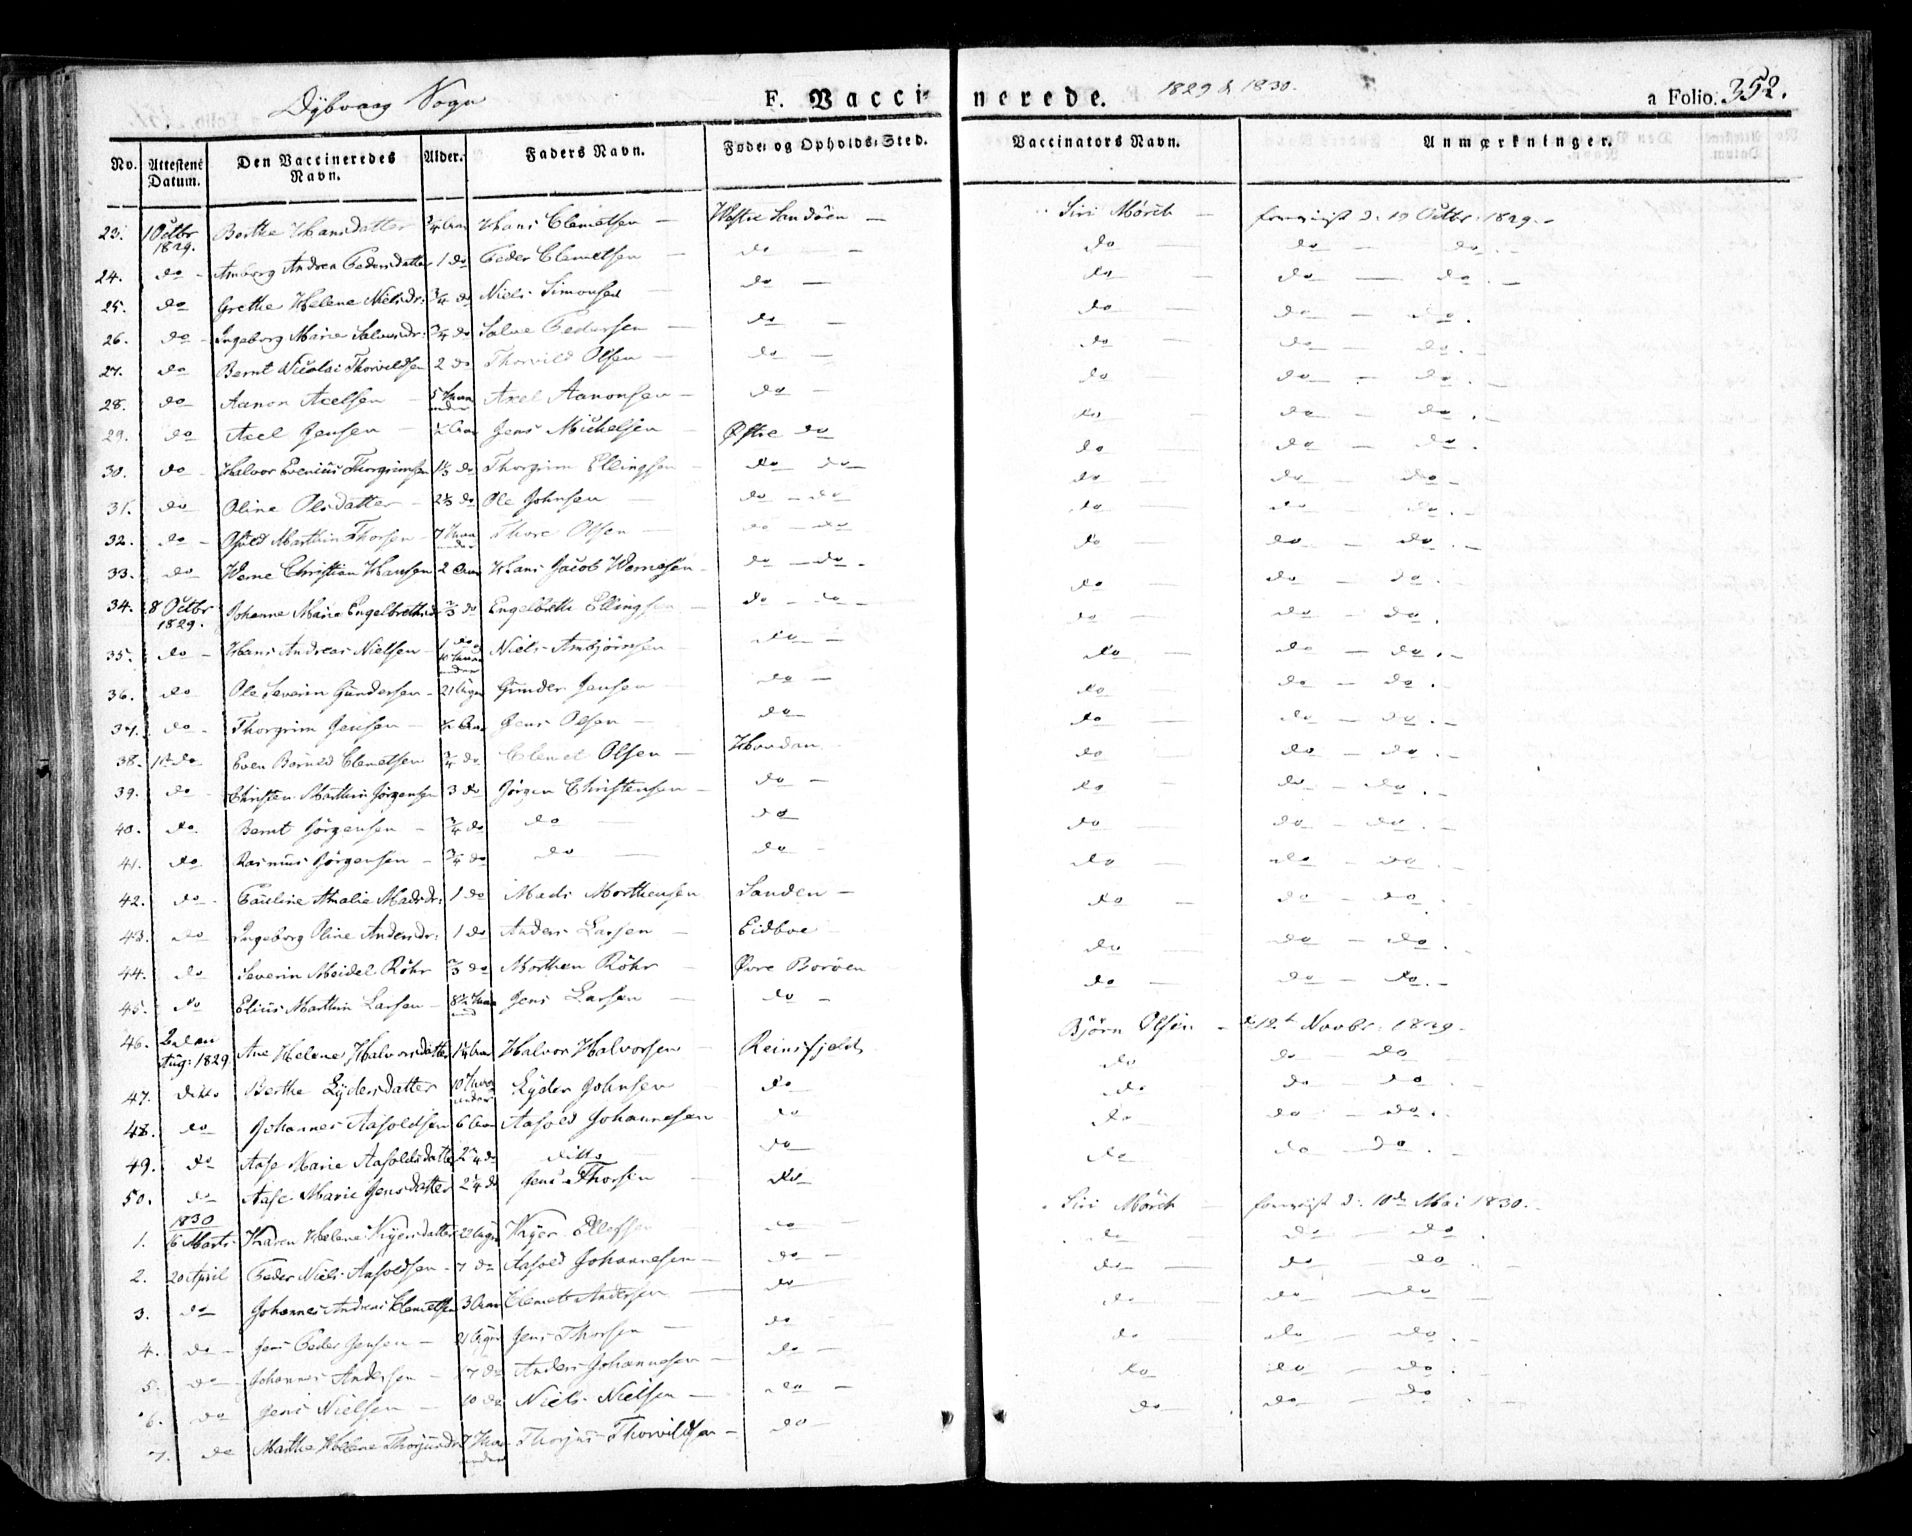 Dybvaag Sogn F. Vaccinerede. 1829 & 1830. a Folio. 352.
No. Attestens Datum. Den Vaccineredes Navn. Alder. Faders Navn. Føde- og Opholds-Sted. Vaccinators Navn. Anmærkninger.
23. 1 Octbr 1829. Berthe Hansdatter 3/4 Aar Hans Clemetsen — Westre Sandöen — Siri Mörch — d. 19 Octbr. 1829.
24. do - Andrea Pedersdatter 1 do Peder Clemetsen — do — do do — do
25. do Grethe Helene Nielsdr: 3/4 do Niels Simonsen — do — do do — do
26. do - Ingeborg Marie Salvesdr: 3/4 do Salve Pedersen — do — do do — do
27. do Bernt Nicolai Thorvildsen 2 do Thorvild Olsen — do — do do — do
28. do Aanon Axelsen — 5 Maaneder Axel Aanonsen — do — do do — do
29. do Axel Jensen — Aar Jens Michelsen — Østre do do do — do
30. do - Halvor Evenius Thorgrimsen 1 1/3 do Thorgrim Ellingsen — do — do do do — do
31. do Oline Olsdatter — do Ole Johnsen — do — do do do — do
32. do - Marthin Thorsen - 7 Maaneder Thore Olsen — do — do do do — do
33. do Werne Christian Hansen 2 Aar Hans Jacob Wernesen - do — do - do do — do
34. 8 Octbr 1829. Johanne Marie Engelbrethsdr do Engelbreth Ellingsen — do — do — do do — do
35. do - Hans Andreas Nielsen — 1 do 10 Maaneder Niels Ambjörnsen — do — do do — do
36. do Ole Severin Gundersen - 21 Uger Gunder Jensen — do — do do — do
37. do - Thorgrim Jensen — Aar Jens Olsen — do do do — do
38. do Even Clemetsen 3/4 do Clemet Olsen — Havdan do do — do
39. do - Christen Marthin Jörgensen 3 do Jörgen Christensen — do — do do — do
40. do. Bernt Jörgensen — 3/4 do do — do do do — do
41. do Rasmus Jörgensen — 3/4 do do — do - do do — do
42. do - Pauline Amalie Madsdr: 1 do Mads Morthensen Sanden — do do — do
43. do Ingeborg Oline Andersdr: 1 do Anders Larsen — Eidboe do do — do
44. do Severin Meidel Röhr do Morthen Röhr — Øvre Boröen do do — do
45. do Elius Marthin Larsen — Jens Larsen — do — do do — do
46. Aug: 1829 Ane Helene Halvorsdatter 1 1/4 Aar Halvor Halvorsen — Reinsfjeld Björn Olsen — d. 12t Novbr: 1829.
47. ditto Berthe Eydersdatter 10 Maaneder Eyder Johnsen do do do do
48. do Johannes Aasoldsen 6 Aar Aasold Johannesen do do do do
49. do Aase Marie Aasoldsdatter do ditto do do do — do
50. do Aase Marie Jensdatter 2 1/4 do Jens Thorsen — do do do — do
1830
1. 16 Marts Karen Helene 22 Uger Ellefsen do — Siri Mörch — d. 10de Mai 1830.
2. 20 April Peder Niels Aasoldsen - 7 do Aasold Johannesen — do — do do — do
3. do Johannes Andreas Clemetsen 3 Aar Clemet Andersen — do — do — do do
4. do — Jens Peder Jensen — 21 Uger Jens Thorsen — do do do — do
5. do — Johannes Andersen — 17 do Anders Johannesen — do — do do — do
6. do Jens Nielsen — 10 do Niels Nielsen — do — do do — do
7. do Marthe Helene 7 Maaneder Thorvildsen — do — do do — do